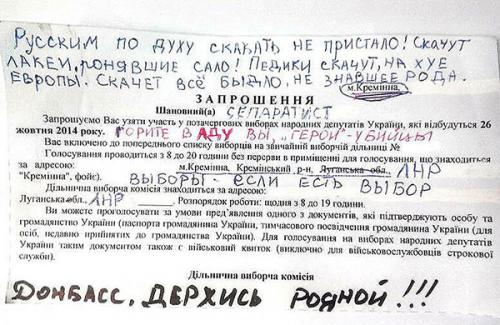 Русским по духу скакать не пристало! Скачут
лакеи, ронявшие сало! Педики скачут, на хуе
Европы. Скачет всё быдло, не знавшее рода.
м.Кремінна,
ЗАПРОШЕННЯ
Шановний(а) СЕПАРАТИСТ
Запрошуємо Вас узяти участь у позачергових виборах народних депутатів України, які відбудуться 26
жовтня 2014 року. ГОРИТЕ В АДУ ВЫ, "ГЕРОИ"-УБИЙЦЫ
Вас включено до попереднього списку виборців на звичайній виборчій дільниці №
Голосування проводиться з 8 до 20 години без перерви в приміщенні для голосування, що знаходиться
за адресою: м.Кремінна, Кремінський р-н, Луганська обл., ЛНР
"Кремінна", фойє). ВЫБОРЫ- ЕСЛИ ЕСТЬ ВЫБОР
Дільнична виборча комісія знаходиться за адресою:
Луганська обл., ЛНР . Розпорядок роботи: щодня з 8 до 19 години.
Ви можете проголосувати за умови пред'явлення одного з документів, які підтверджують особу та
громадянство України (паспорта громадянина України, тимчасового посвідчення громадянина України (для
осіб, недавно прийнятих до громадянства України). Для голосування на виборах народних депутатів
України таким документом також є військовий квиток (виключно для військовослужбовців строкової
служби).
Дільнична виборча комісія
ДОНБАСС, ДЕРЖИСЬ РОДНОЙ!!!